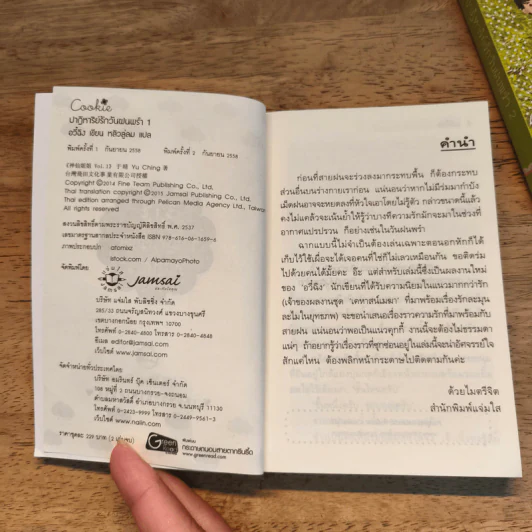 Cookie
ปาฏิหาริย์รักวันฝนพรำ 1
อวี๋ฉิง เขียน หลิวลู่ลม แปล
พิมพ์ครั้งที่ 1 กันยายน 2558 พิมพ์ครั้งที่ 2 กันยายน 2558
Vol.13 于晴 Yu Ching
Copyright © 2014 Fine Team Publishing Co., Ltd.
Thai translation copyright © 2015 Jamsai Publishing Co., Ltd.
Thai edition arranged through Pelican Media Agency Ltd., Taiwan
All rights reserved
สงวนลิขสิทธิ์ตามพระราชบัญญัติลิขสิทธิ์ พ.ศ. 2537
เลขมาตรฐานสากลประจำหนังสือ ISBN 978-616-06-1659-6
ภาพประกอบปก atomia
istock.com / AlpamayoPhoto
จัดพิมพ์โดย
jamsai
บริษัท แจ่มใส พับลิชชิ่ง จำกัด
285/33 ถนนจรัญสนิทวงศ์ แขวงบางขุนศรี
เขตบางกอกน้อย กรุงเทพฯ 10700
โทรศัพท์ 0-2840-4800 โทรสาร 0-2840-4848
อีเมล editor@jamsai.com
เว็บไซต์ www.jamsai.com
จัดจำหน่ายทั่วประเทศโดย
บริษัท อมรินทร์ บุ๊ค เซ็นเตอร์ จำกัด
108 หมู่ที่ 2 ถนนบางกรวย-จงถนอม
ตำบลมหาสวัสดิ์ อำเภอบางกรวย จ.นนทบุรี 11130
โทรศัพท์ 0-2423-9999 โทรสาร
เว็บไซต์ www.naiin.com
ราคาชุดละ 229 บาท (2 เล่มจบ)
Green
กระดาษถนอมสายตากรีนรี้ด
www.greenread.com
คำนำ
ก่อนที่สายฝนจะร่วงลงมากระทบพื้น ก็ต้องกระทบ
ส่วนอื่นบนร่างกายเราก่อน แน่นอนว่าหากไม่มีร่มมากำบัง
เม็ดฝนอาจจะหยดลงที่หัวใจเลยโดยไม่รู้ตัว กล่าวขนาดนี้แล้ว
คงไม่แคล้วจะเน้นย้ำให้รู้ว่าบางทีความรักมักจะมาในช่วงที่
อากาศแปรปรวน ก็อย่างเช่นในวันฝนพรำ
ฉากแบบนี้ไม่จำเป็นต้องเล่นเฉพาะตอนอกหักก็ได้
เก็บไว้ใช้เผื่อจะได้เจอคนที่ใช่ก็ไม่เลวเหมือนกัน ขอติดร่ม
ไปด้วยคนได้มั้ยคะ อ๊ะ แต่สำหรับเล่มนี้ซึ่งเป็นผลงานใหม่
ของ 'อวี๋ฉิง' นักเขียนที่ได้รับความนิยมในแนวมากกว่ารัก
(เจ้าของผลงานชุด 'เคหาสน์เมฆา' ที่มาพร้อมเรื่องรักละมุน
ละไมในยุทธภพ) จะขอนำเสนอเรื่องราวความรักที่มาพร้อมกับ
สายฝน แน่นอนว่าพอเป็นแนวคุกกี้ งานนี้จะต้องไม่ธรรมดา
แน่ๆ ถ้าอยากรู้ว่าเรื่องราวที่ซุกซ่อนอยู่ในเล่มนี้จะน่าอัศจรรย์ใจ
สักแค่ไหน ต้องพลิกหน้ากระดาษไปติดตามกันค่ะ
ด้วยไมตรีจิต
สำนักพิมพ์แจ่มใส